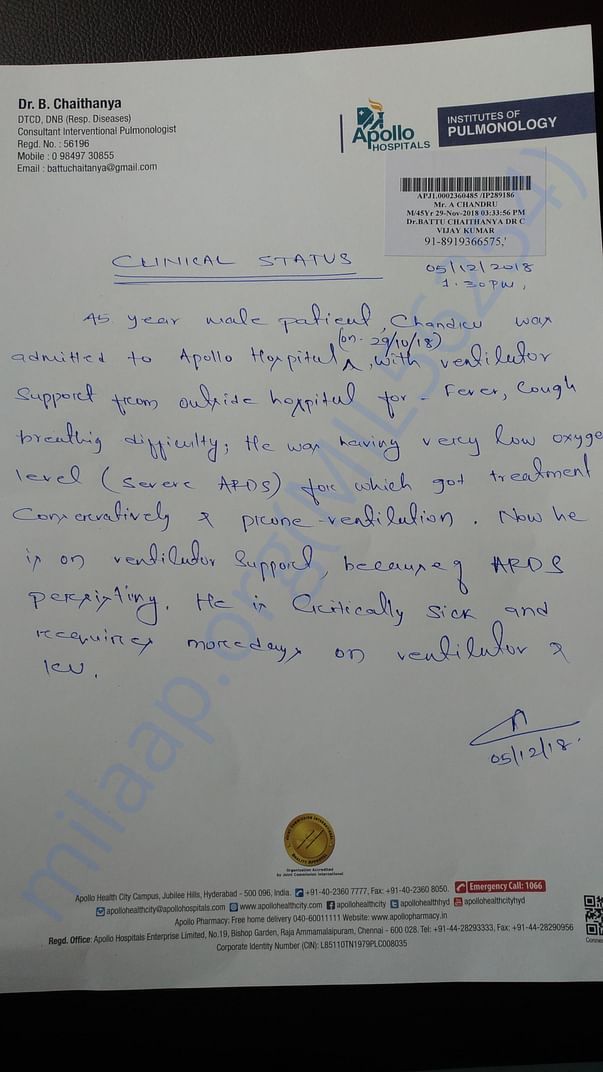 Dr. B. Chaithanya
DTCD, DNB (Resp. Diseases)
Consultant Interventional Pulmonologist
Regd. No. : 56196
Mobile : 0 98497 30855
Email : battuchaitanya@gmail.com
Apollo
HOSPITALS
INSTITUTES OF
PULMONOLOGY
APJ1.0002360485 /IP289186
Mr. A CHANDRU
M/45Yr 29-Nov-2018 03:33:56 PM
Dr.BATTU CHAITHANYA DR C
VIJAY KUMAR
91-8919366575,'
CLINICAL STATUS
05/12/2018
1.30PM,
45 year male patient, Chandru was
(on 29/10/18)
admitted to Apollo Hospital, with ventilator
Support from outside hospital for - Fever, Cough
breathig difficulty; He was having very low oxygen
level (Severe ARDS) for which got treatment
Conservatively & prone-ventilation. Now he
is on ventilator Support, because of ARDS
persisting. He is Critically sick and
requires more days on ventilator &
ICU.
05/12/18.
milaap.org(MIL56234)
Organization Accredited
by Joint Commission International
Apollo Health City Campus, Jubilee Hills, Hyderabad - 500 096, India. +91-40-2360 7777, Fax: +91-40-2360 8050. Emergency Call: 1066
apollohealthcity@apollohospitals.com www.apollohealthcity.com apollohealthcity apollohealthhyd apollohealthcityhyd
Apollo Pharmacy: Free home delivery 040-60011111 Website: www.apollopharmacy.in
Regd. Office: Apollo Hospitals Enterprise Limited, No.19, Bishop Garden, Raja Annamalaipuram, Chennai - 600 028. Tel: +91-44-28293333, Fax: +91-44-28290956
Corporate Identity Number (CIN): L85110TN1979PLC008035